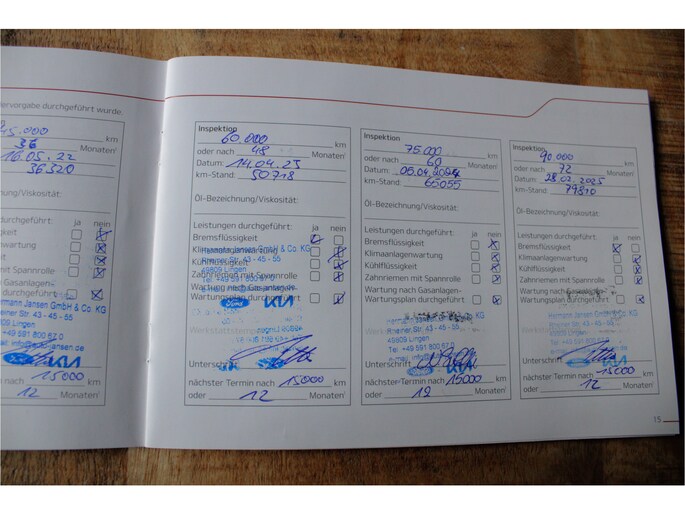 ervorgabe durchgeführt wurde.
45.000 km
36 Monaten¹
16.05.22
36320
nung/Viskosität:
durchgeführt: ja nein
gkeit
wartung
it
mit Spannrolle
h Gasanlagen-
durchgeführt
ermann Jansen GmbH & Co. KG
einer Str. 43 - 45 - 55
09 Lingen
+49 591 800 67 0
jansen.de
Ford KIA
nach 15000 km
12 Monaten¹
Inspektion
60.000 km
oder nach 48 Monaten¹
Datum: 14.04.23
km-Stand: 50718
Öl-Bezeichnung/Viskosität:
Leistungen durchgeführt: ja nein
Bremsflüssigkeit
Klimaanlagenwartung
Hermann Jansen GmbH & Co. KG
Kühlflüssigkeit
Rheiner Str. 43 - 45 - 55
49809 Lingen
Zahnriemen mit Spannrolle
Tel. +49 591 800 67 0
Wartung nach Gasanlagen-
Wartungsplan durchgeführt
Ford KIA
Unterschrift
nächster Termin nach 15000 km
oder 12 Monaten¹
Inspektion
75.000 km
oder nach 60 Monaten¹
Datum: 05.04.2024
km-Stand: 65055
Öl-Bezeichnung/Viskosität:
Leistungen durchgeführt: ja nein
Bremsflüssigkeit
Klimaanlagenwartung
Kühlflüssigkeit
Zahnriemen mit Spannrolle
Wartung nach Gasanlagen-
Wartungsplan durchgeführt
Hermann Jansen GmbH & Co. KG
Rheiner Str. 43 - 45 - 55
49809 Lingen
Tel. +49 591 800 67 0
Unterschrift
nächster Termin nach 15000 km
oder 12 Monaten¹
Inspektion
90.000 km
oder nach 72 Monaten¹
Datum: 28.02.2025
km-Stand: 79810
Öl-Bezeichnung/Viskosität:
Leistungen durchgeführt: ja nein
Bremsflüssigkeit
Klimaanlagenwartung
Kühlflüssigkeit
Zahnriemen mit Spannrolle
Wartung nach Gasanlagen-
Wartungsplan durchgeführt
Hermann Jansen GmbH & Co. KG
Rheiner Str. 43 - 45 - 55
49809 Lingen
Tel. +49 591 800 67 0
Unterschrift
nächster Termin nach 15000 km
oder 12 Monaten¹
15